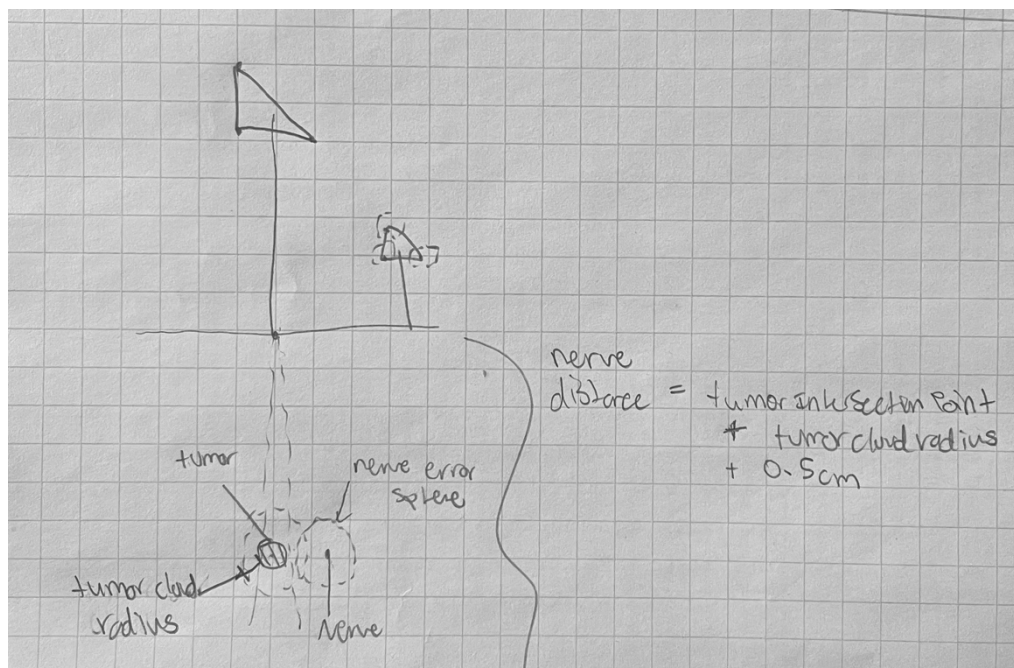 nerve
distance = tumor intersection point
+ tumor cloud radius
+ 0.5cm
tumor
nerve error
sphere
tumor cloud
radius
Nerve